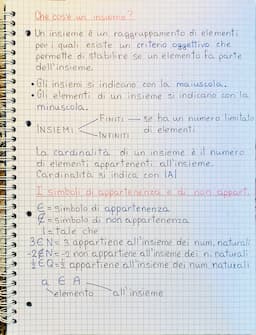 Che cos'è un insieme?
Un insieme è un raggruppamento di elementi
per i quali esiste un criterio oggettivo che
permette di stabilire se un elemento fa parte
dell'insieme.
• Gli insiemi si indicano con la maiuscola.
• Gli elementi di un insieme si indicano con la
minuscola.
FINITI — se ha un numero limitato
INSIEMI di elementi
INFINITI
La cardinalità di un insieme è il numero
di elementi appartenenti all'insieme.
Cardinalità si indica con |A|
I simboli di appartenenza e di non appart.
∈ = simbolo di appartenenza
∉ = simbolo di non appartenenza
| = tale che
3∈N = 3 appartiene all'insieme dei num. naturali
-2∉N = -2 non appartiene all'insieme dei n. naturali
½∈Q = ½ appartiene all'insieme dei num. naturali
a ∈ A
elemento all'insieme